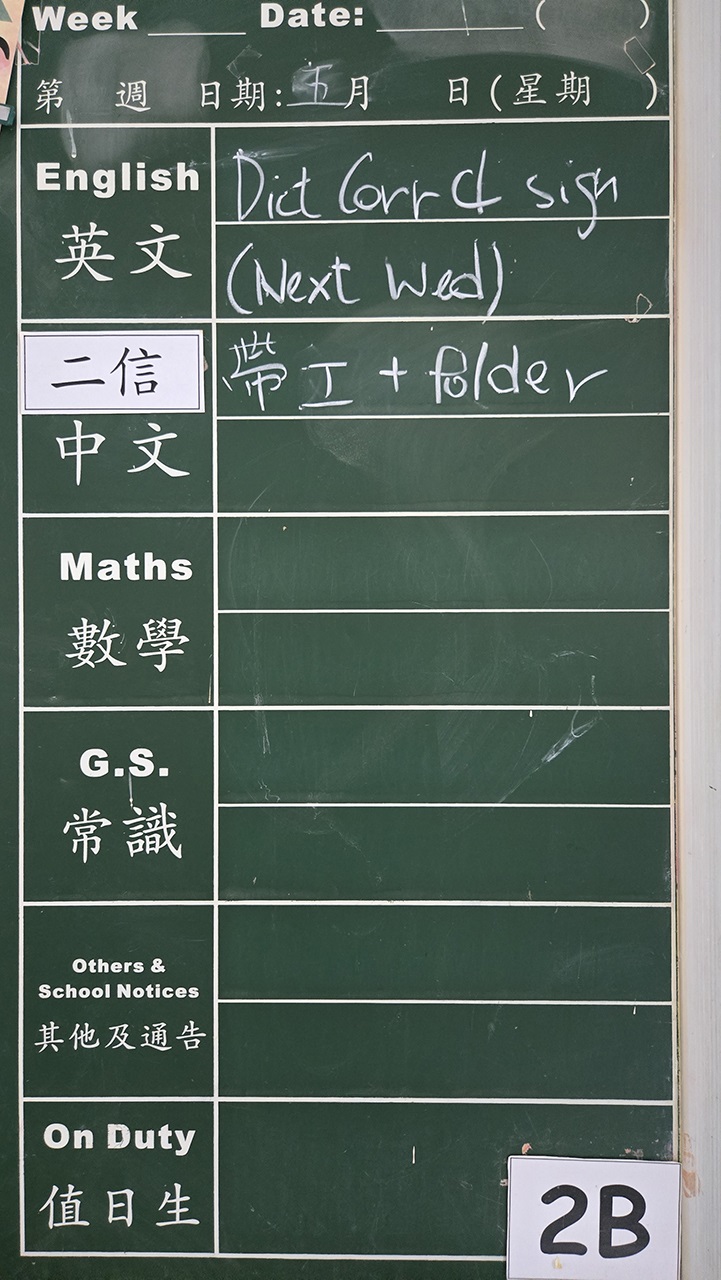 Week ______ Date: __________ ( )
第 週 日期:五月 日(星期 )
English
英文
Dict Corr & sign
(Next Wed)
二信
帶工 + folder
中文
Maths
數學
G.S.
常識
Others &
School Notices
其他及通告
On Duty
值日生
2B